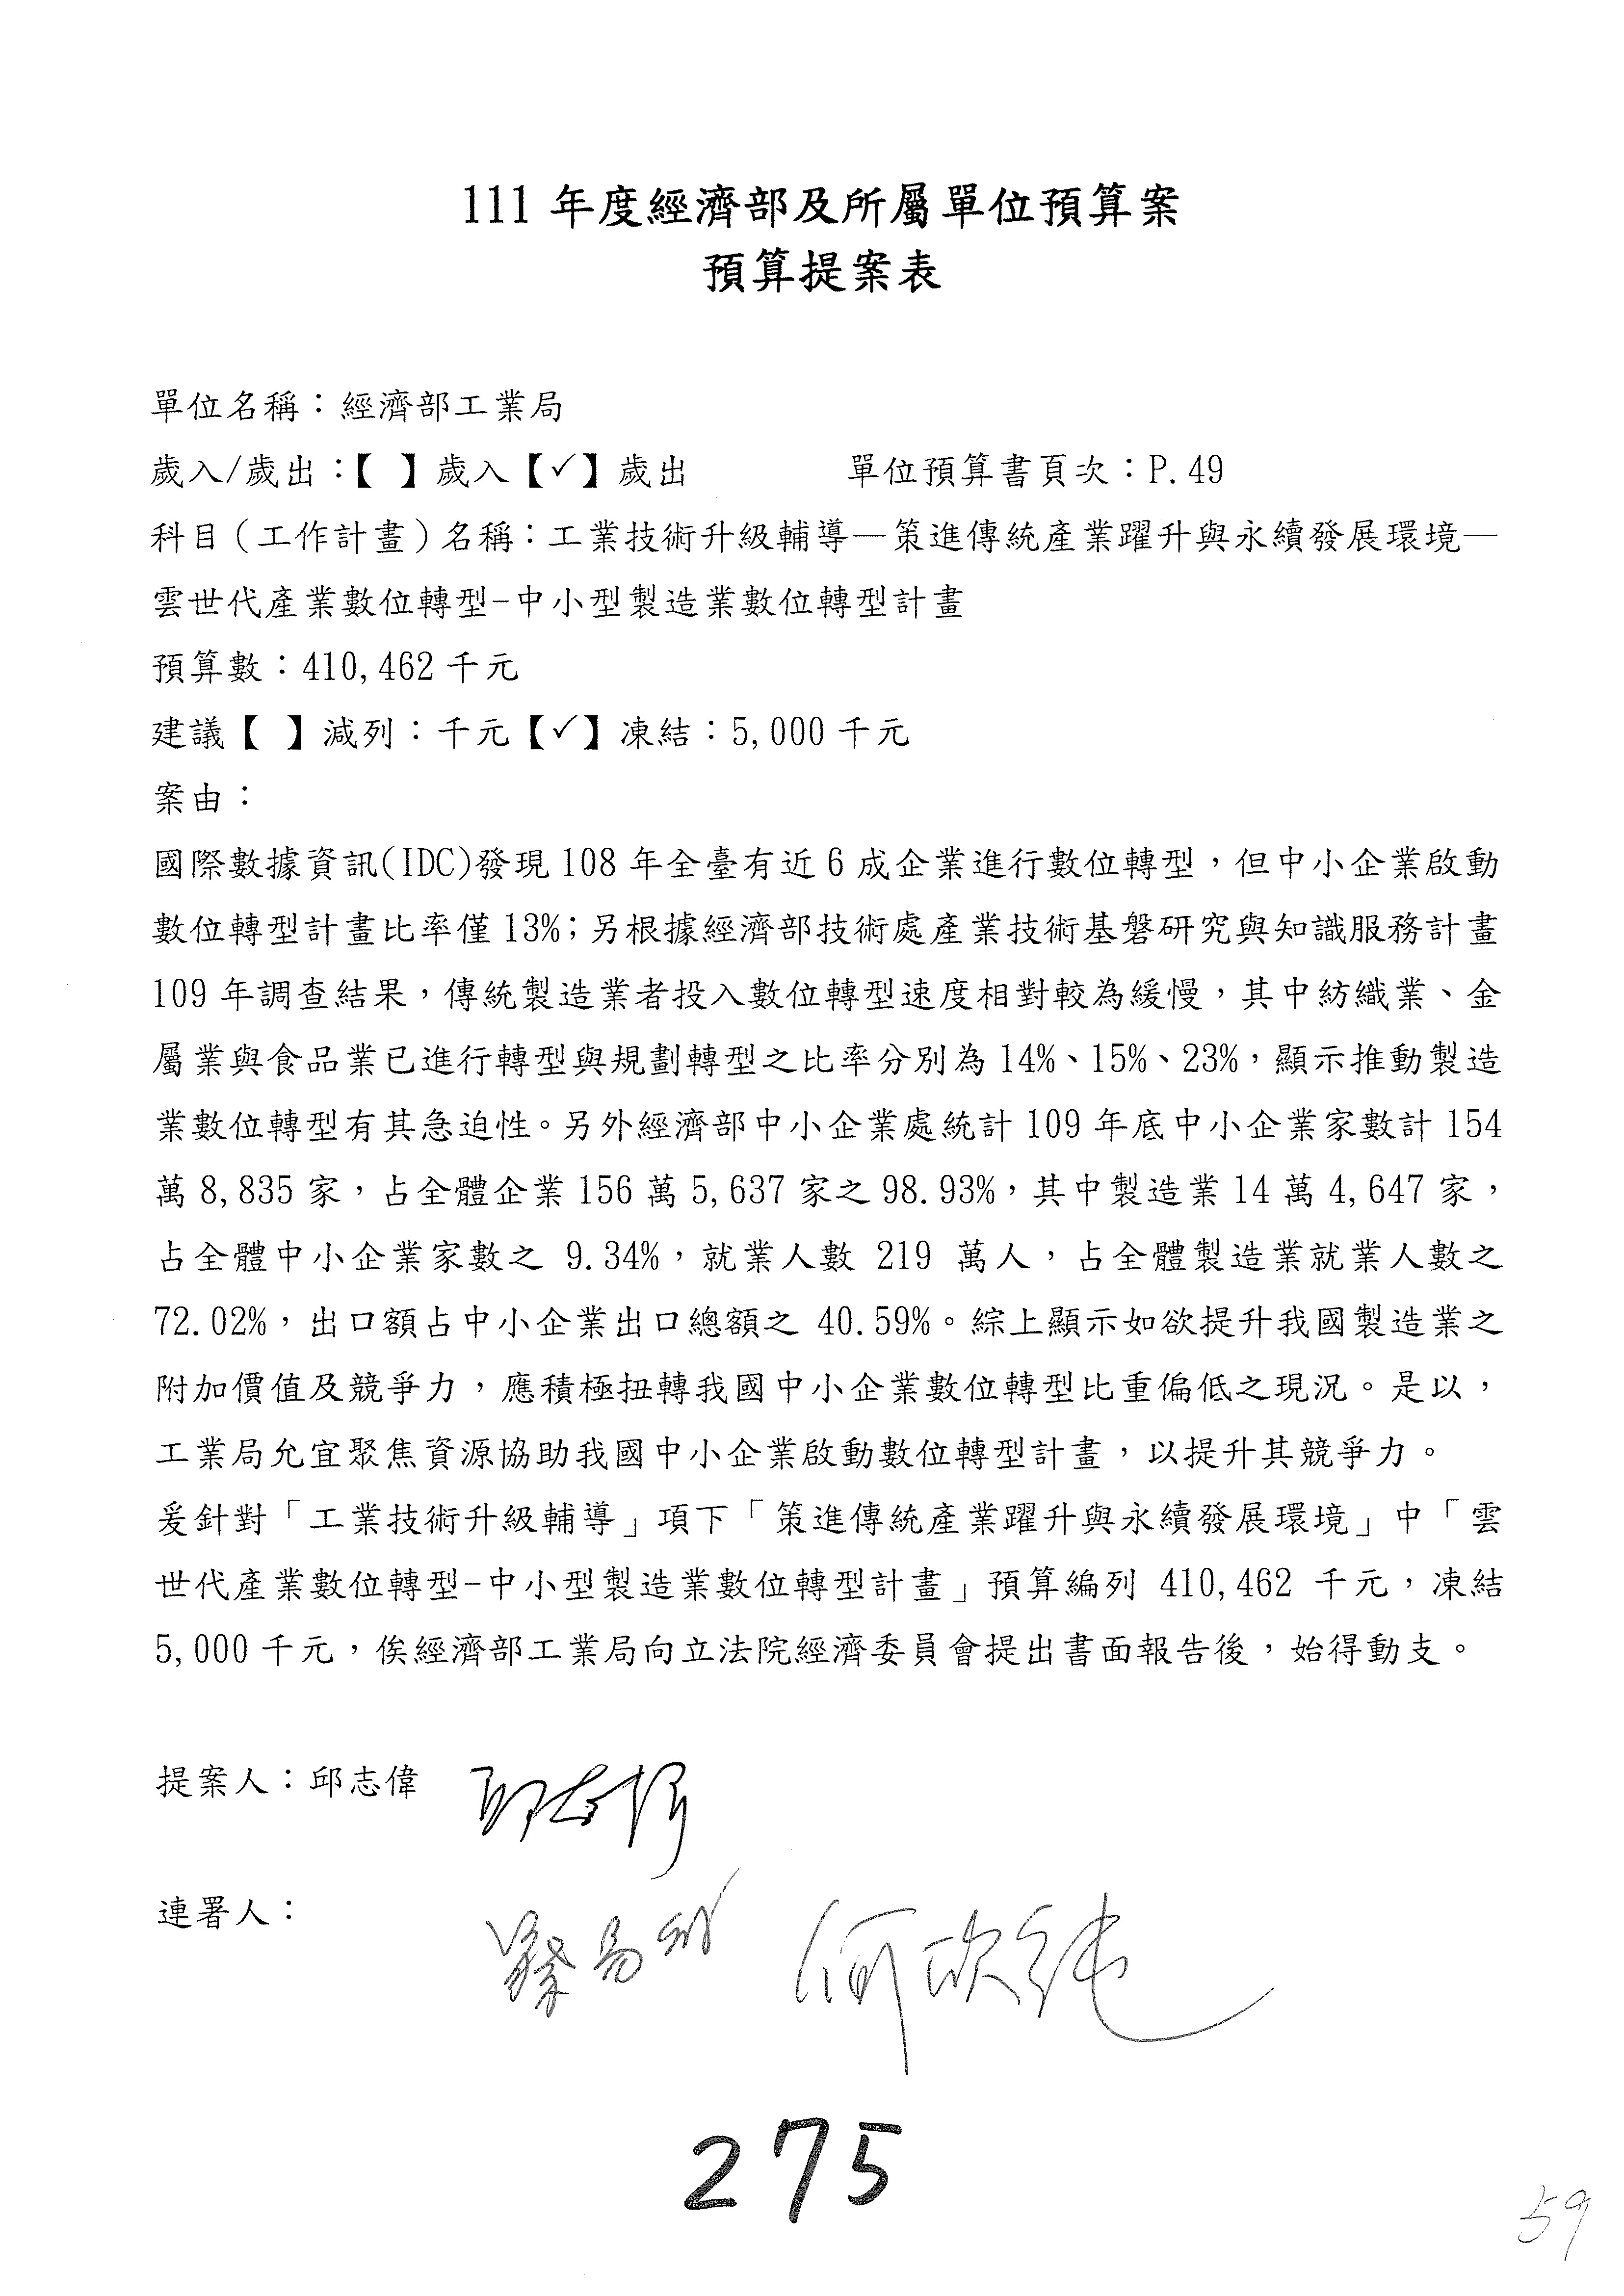 111 年度經濟部及所屬單位預算案
預算提案表
單位名稱：經濟部工業局
歲入/歲出：【 】歲入【✓】歲出 單位預算書頁次：P.49
科目（工作計畫）名稱：工業技術升級輔導—策進傳統產業躍升與永續發展環境—
雲世代產業數位轉型-中小型製造業數位轉型計畫
預算數：410,462 千元
建議【 】減列：千元【✓】凍結：5,000 千元
案由：
國際數據資訊(IDC)發現 108 年全臺有近 6 成企業進行數位轉型，但中小企業啟動
數位轉型計畫比率僅 13%；另根據經濟部技術處產業技術基磐研究與知識服務計畫
109 年調查結果，傳統製造業者投入數位轉型速度相對較為緩慢，其中紡織業、金
屬業與食品業已進行轉型與規劃轉型之比率分別為 14%、15%、23%，顯示推動製造
業數位轉型有其急迫性。另外經濟部中小企業處統計 109 年底中小企業家數計 154
萬 8,835 家，占全體企業 156 萬 5,637 家之 98.93%，其中製造業 14 萬 4,647 家，
占全體中小企業家數之 9.34%，就業人數 219 萬人，占全體製造業就業人數之
72.02%，出口額占中小企業出口總額之 40.59%。綜上顯示如欲提升我國製造業之
附加價值及競爭力，應積極扭轉我國中小企業數位轉型比重偏低之現況。是以，
工業局允宜聚焦資源協助我國中小企業啟動數位轉型計畫，以提升其競爭力。
爰針對「工業技術升級輔導」項下「策進傳統產業躍升與永續發展環境」中「雲
世代產業數位轉型-中小型製造業數位轉型計畫」預算編列 410,462 千元，凍結
5,000 千元，俟經濟部工業局向立法院經濟委員會提出書面報告後，始得動支。
提案人：邱志偉 邱志偉
連署人：
蔡易餘 何欣純
275
59